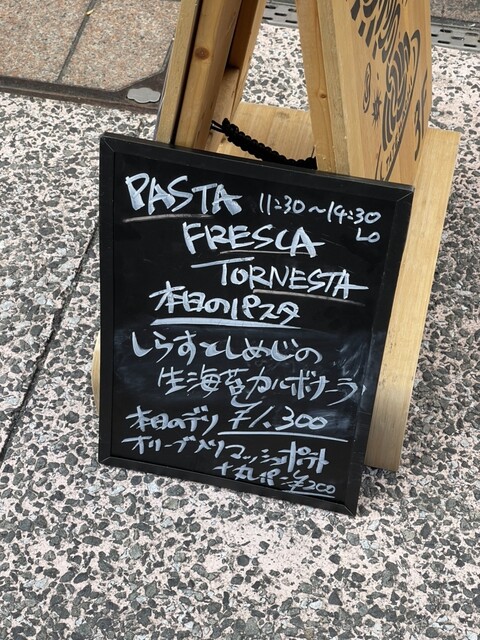 PASTA 11:30~14:30
LO
FRESCA
TORNESTA
本日のパスタ
しらすとしめじの
生海苔カルボナーラ
本日のデリ ¥1.300
オリーブ入りマッシュポテト
¥200